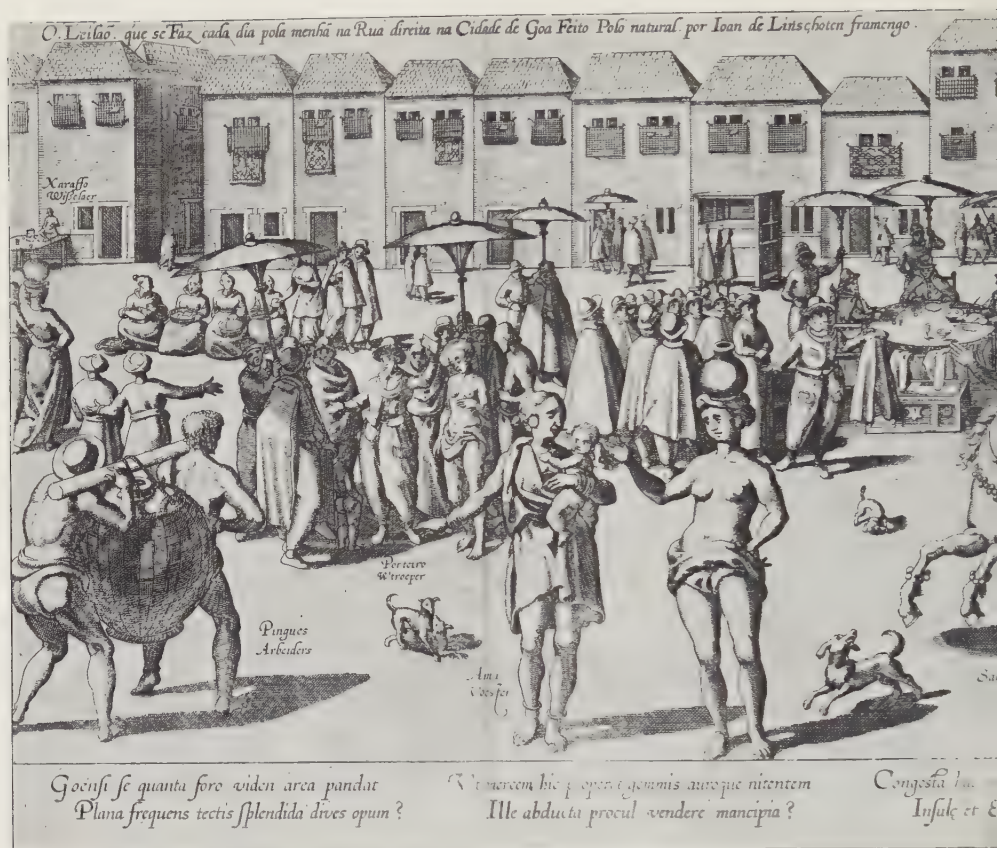 O Leilaõ que se Faz cada dia pola menhã na Rua direita na Cidade de Goa Feito Polo natural por Ioan de Linschoten framengo.
Xaraffo
Wisselaer
Porteiro
Wtroeper
Pingues
Arbeiders
Ama
Sa
Goensi se quanta foro viden area pandat
Plana frequens tectis splendida dives opum?
hic gemmis auroque nitentem
Ille abducta procul vendere mancipia?
Congesta
Insulę et